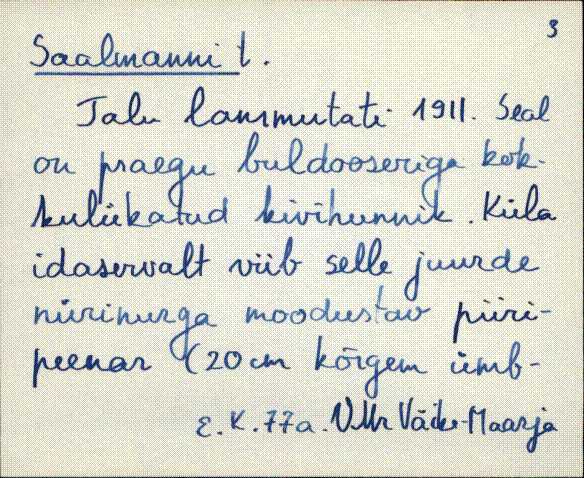 3
Saalmanni t.
Talu lammutati 1911. Seal
on praegu buldooseriga kok-
kulükatud kivihunnik. Küla
idaservalt viib selle juurde
nürinurga moodustav piiri-
peenar (20 cm kõrgem ümb-
E.K. 77a. VMr Väike-Maarja